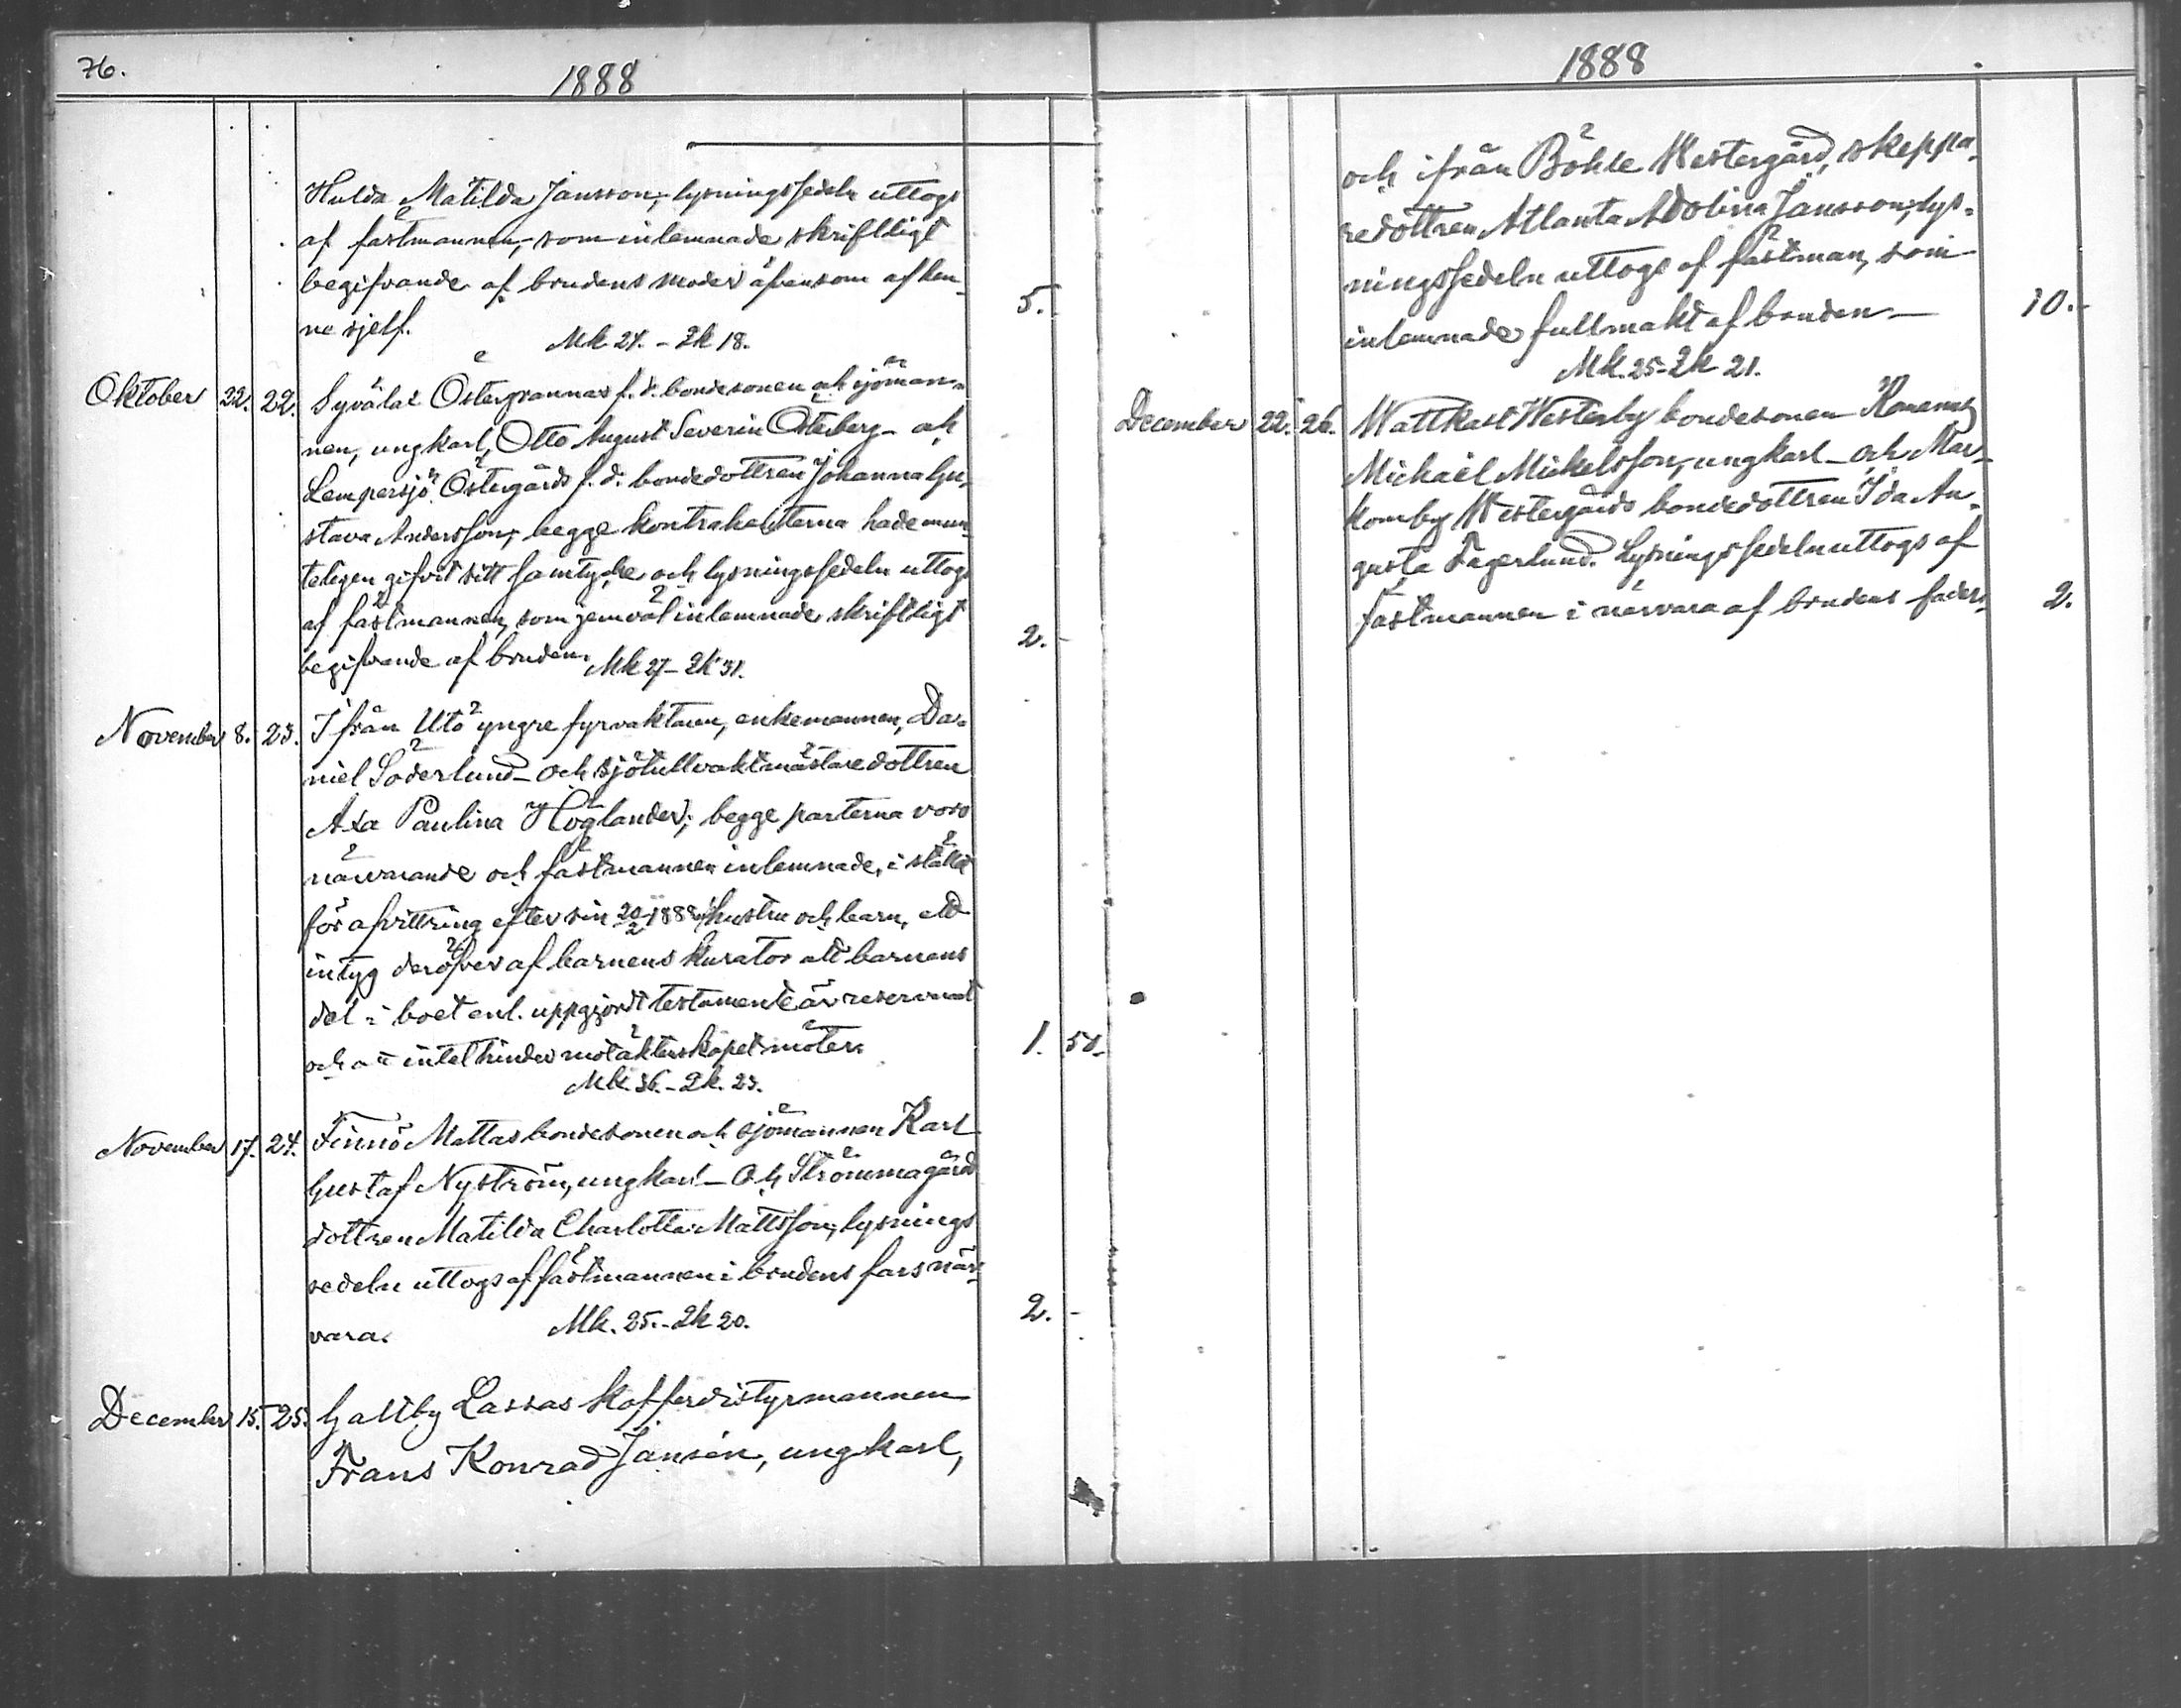 76.
1888
Hulda Matilda Jansson; lysningssedeln uttogs
af fästmannen, som inlemnade skriftligt
begifvande af brudens moder äfvensom af hen-
ne sjelf. 5.-
Mk 24. - Lk 18.
Oktober 22. 22. Syvälax Östergrannas f. d. bondesonen och sjöman-
nen, ungkarl, Otto August Severin Österberg - och
Lempersjö Östergårds f. d. bondedottren Johanna Gu-
stava Andersson; begge kontrahenterna hade mun-
teligen gifvit sitt samtycke och lysningssedeln uttogs
af fästmannen, som jemväl inlemnade skriftligt
begifvande af bruden. 2.-
Mk 27 - Lk 31.
November 8. 23. Ifrån Utö yngre fyrvaktaren, enkemannen, Da-
niel Söderlund - och sjötullvaktmästaredottren
Axa Paulina Höglander; begge parterna voro
närvarande och fästmannen inlemnade, i stället
för afvittring efter sin 20/2 1888 hustru och barn, ett
intyg deröfver af barnens kurator att barnens
del i boet enl. uppgjordt testamente är reserverad
och att intet hinder mot äktenskapet möter. 1. 50.
Mk. 36. - Lk. 23.
November 17. 24. Finnö Mattas bondesonen och sjömannen Karl
Gustaf Nyström, ungkarl - och Strömma gård
dottren Matilda Charlotta Mattsson; lysnings
sedeln uttogs af fästmannen i brudens fars när-
vara. 2.-
Mk. 25. - Lk 20.
December 15. 25. Galtby Lassas kofferdistyrmannen
Frans Konrad Jansén, ungkarl,
1888
och ifrån Böhle Westergård, skeppa-
redottren Atlanta Adolina Jansson; lys-
ningssedeln uttogs af fästman, som
inlemnade fullmakt af bruden - 10.-
Mk. 25 - Lk 21.
December 22. 26. Wattkast Westerby bondesonen
Michaël Mickelsson, ungkarl - och Mar-
komby Westergårds bondedottren Ida Au-
gusta Fagerlund. Lysningssedeln uttogs af
fästmannen i närvara af brudens fader. 2.